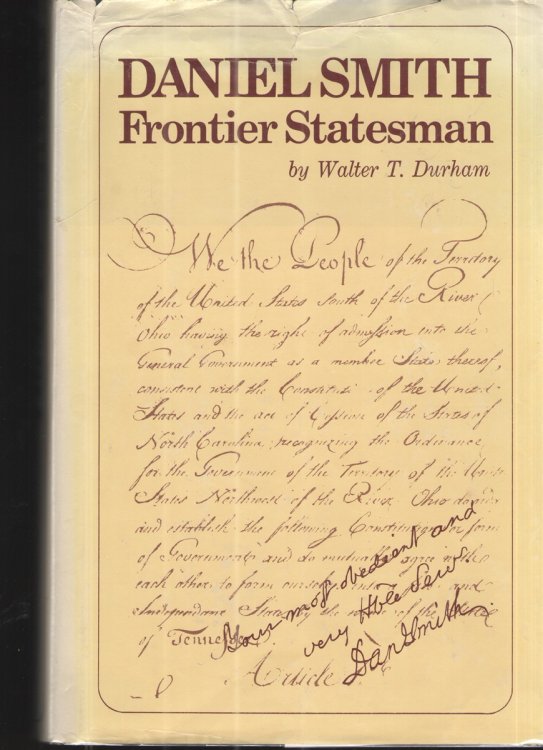 DANIEL SMITH
Frontier Statesman
by Walter T. Durham
We the People of the Territory
of the United States South of the River
Ohio having the right of admission into the
General Government as a member State thereof,
consistent with the Constituti of the United
States and the act of Cession of the State of
North Carolina, recognizing the Ordinance
for the Government of the Territory of the
States Northwest of the River Ohio
and establish the following Constitution or form
of Government and do mutually agree with
each other to form and
Independent State by the name of the State
of Tennessee.
Article
Your most obedient and
very Hble Serv
Dan Smith